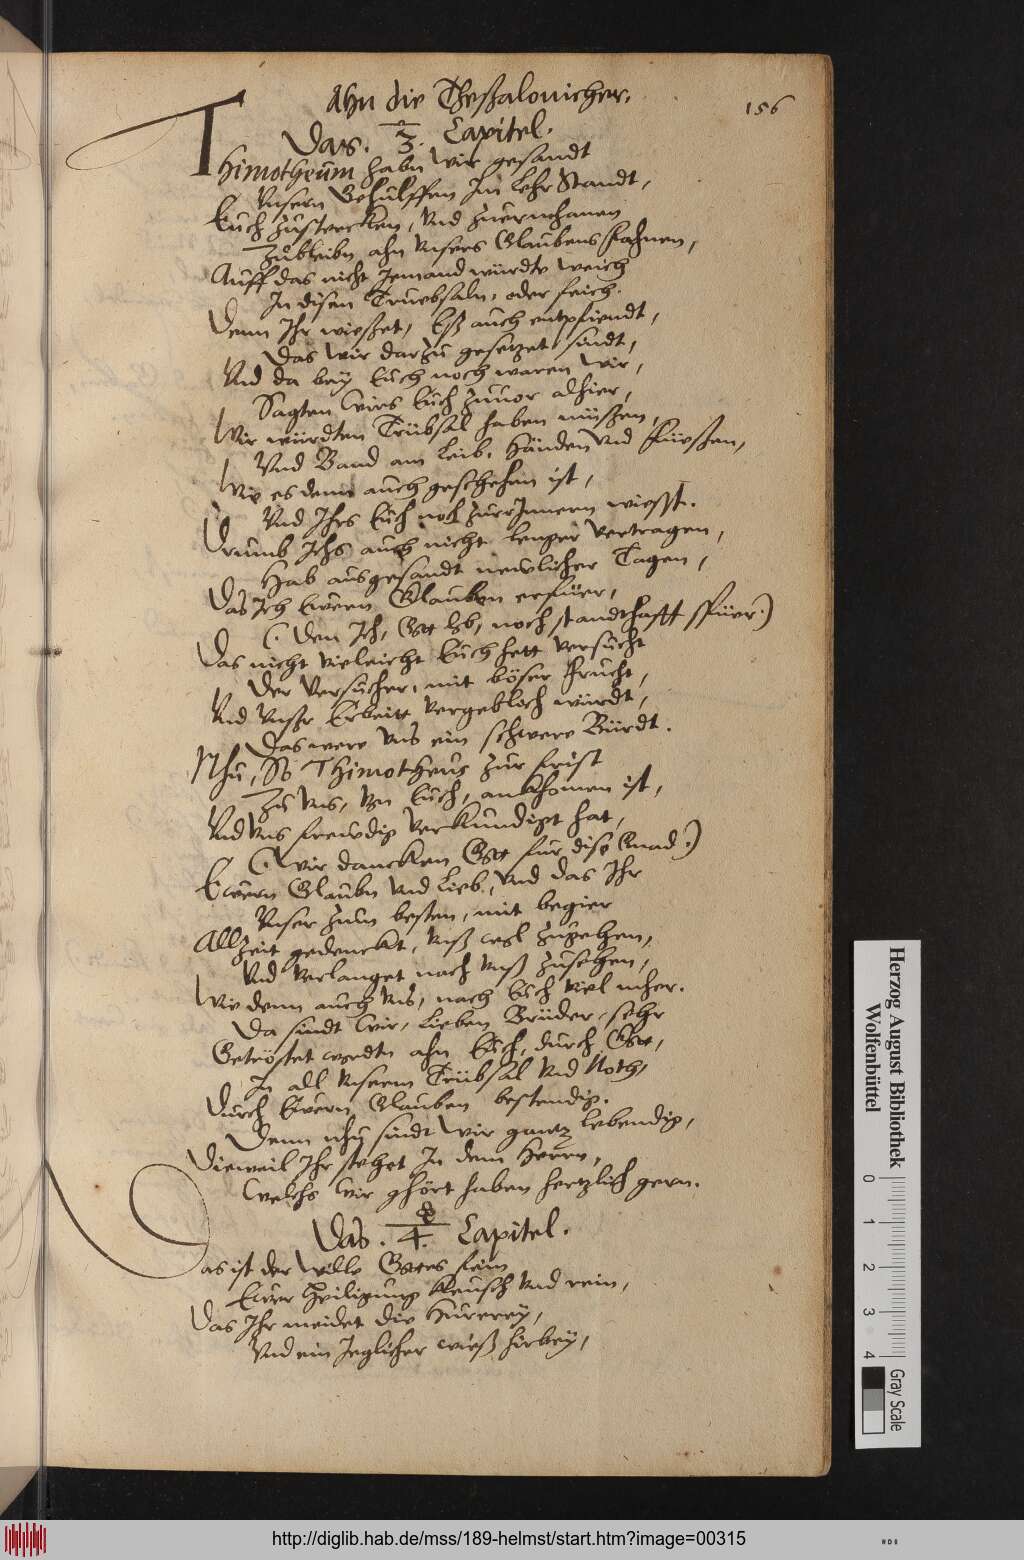 Ahn die Theßalonicher.
156
Das. 3. Capitel.
Thimotheum habn wir gesandt
Vnsern Gehülffen Im Lehr Standt,
Euch zustercken, Vnd zuermhanen
Zubleibn ahn Vnsers Glaubens Fahnen,
Auff das nicht Jemand würdte weich
In disen Truebsaln, oder feich.
Denn Ihr wießet, Eß auch entpfiendt,
Das wir darzu gesetzet sindt,
Vnd da bey Euch noch waren wir,
Sagten wirs Euch zuuor alhier,
Wir würdten Trübsal haben müßen,
Vnd Band am Leib, Händen Vnd Füeßen,
Wie es denn auch geschehen ist,
Vnd Ihrs Euch noch zuerJnnern wiesst.
Drumb Ichs auch nicht lenger Vertragen,
Hab ausgesandt newlicher Tagen,
Das Ich Ewern Glauben erfüer,
(Den Ich, Gott lob, noch standthafft spüer.)
Das nicht Vieleicht Euch hett Versucht
Der Versucher, mit böser Frucht,
Vnd Vnßr Erbeitt Vergeblich würdt,
Das were Vns ein schwere Bürdt.
Nhu, So Thimotheus zur frist
Zu Vns, Von Euch, ankhomen ist,
Vnd Vns frewdig Verkundigt hat,
(Wir dancken Gott für dise Gnad.)
Ewern Glaubn Vnd Lieb, Vnd das Ihr
Vnser zum besten, mit begier
Allzeit gedenckt, Vnß wol zugehen,
Vnd Verlanget nach Vnß zusehen,
Wie denn auch Vns, nach Euch Viel mher.
Da sindt wir, Lieben Brüder, sehr
Getröstet wordtn ahn Euch, durch Gott,
In all Vnserm Trübsal Vnd Noth,
Durch Ewern Glauben bestendig.
Denn nhu sindt wir gantz lebendig,
Dieweil Ihr stehet In dem Herrn,
Welchs wir ghört haben hertzlich gern.
Das. 4. Capitel.
Das ist der Wille Gottes fein
Ewer Heiligung Keusch Vnd rein,
Das Ihr meidet die Hurerey,
Vnd ein Jeglicher wieß hirbey,
Herzog August Bibliothek
Wolfenbüttel
0 1 2 3 4
Gray Scale
http://diglib.hab.de/mss/189-helmst/start.htm?image=00315